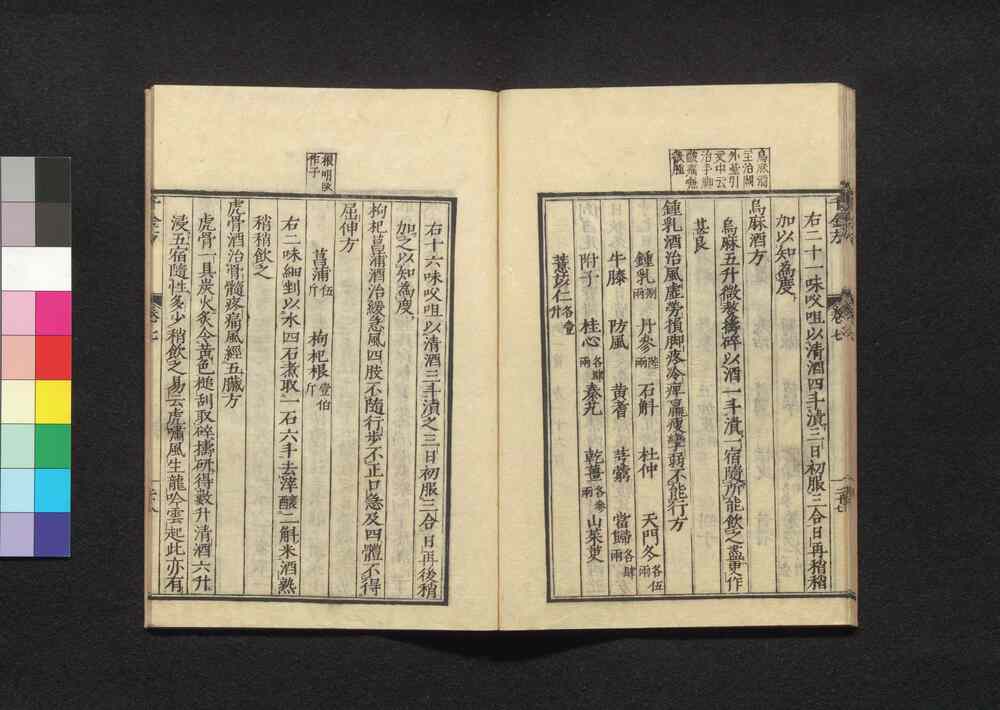 烏麻酒
主治閫
外臺引
文中云
治手脚
千金方
卷七
右二十一味㕮咀以清酒四斗漬三日初服三合日再稍稍
加以知爲度
烏麻酒方
烏麻五升微熬擣碎以酒一斗漬一宿隨所能飲之盡更作
甚良
鍾乳酒治風虛勞損脚疼冷痺羸瘦攣弱不能行方
鍾乳捌兩 丹參陸兩 石斛 杜仲 天門冬各伍兩
牛膝 防風 黃耆 芎藭 當歸各肆兩
附子 桂心各肆兩 秦艽 乾薑各參兩 山茱萸
薏苡仁各壹升
根明跋
作子
右十六味㕮咀以清酒三斗漬之三日初服三合日再後稍
加之以知爲度
枸杞菖蒲酒治緩急風四肢不隨行步不正口急及四體不得
屈伸方
菖蒲伍斤 枸杞根壹伯斤
右二味細剉以水四石煮取一石六斗去滓釀二斛米酒熟
稍稍飲之
虎骨酒治骨髓疼痛風經五臟方
虎骨一具炭火炙令黃色槌刮取碎擣研得數升清酒六升
浸五宿隨性多少稍飲之易云虎嘯風生龍吟雲起此亦有
千金方
卷七